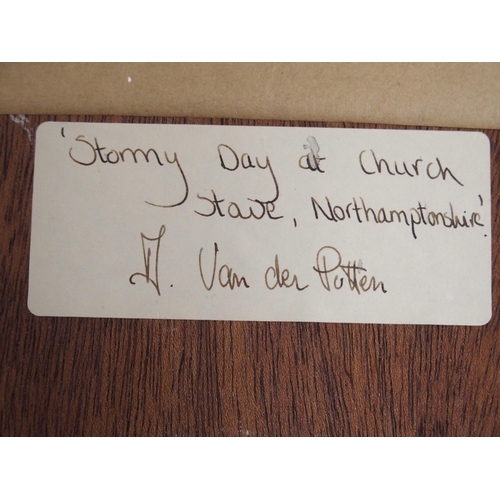 'Stormy Day at Church
Stowe, Northamptonshire'.
Van der Putten